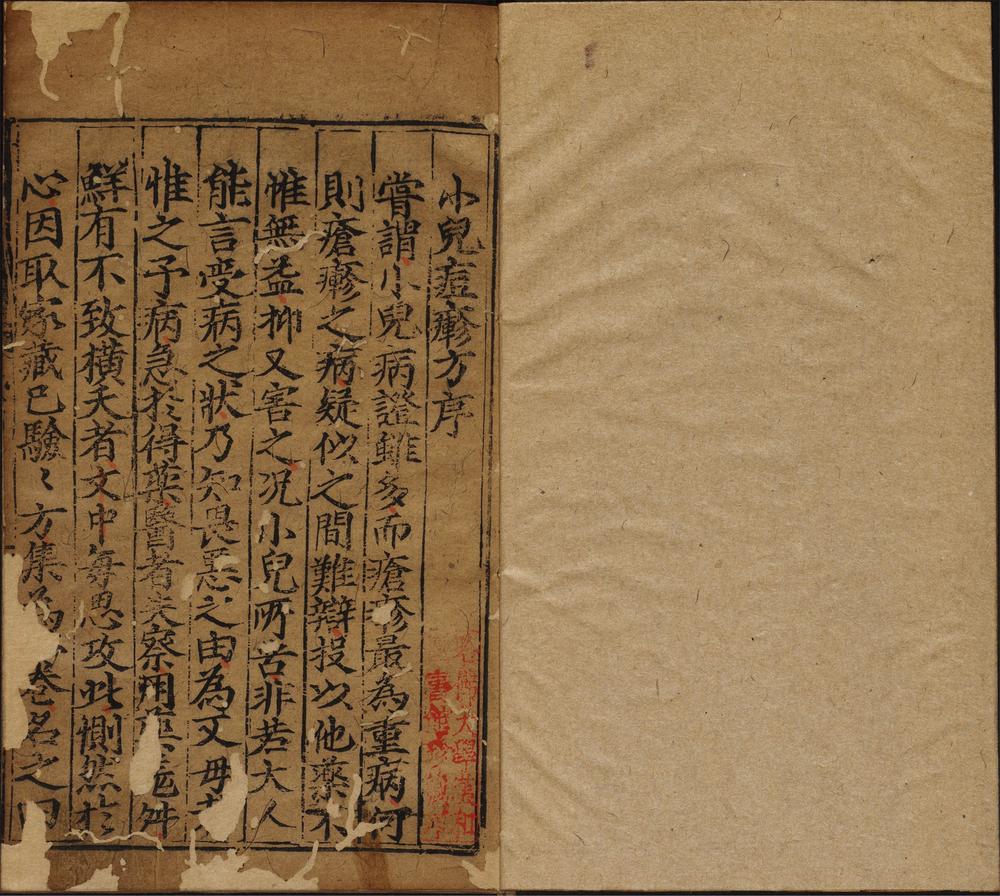 小兒痘疹方序
嘗謂小兒病證雖多而瘡疹最為重病何
則瘡疹之病疑似之間難辯投以他藥不
惟無益抑又害之况小兒所苦非若大人
能言受病之狀乃知畏惡之由為父母者
惟之予病急於得藥醫者失察用藥差舛
鮮有不致橫夭者文中每思攻此惻然於
心因取家藏已驗〻方集為 卷名之曰